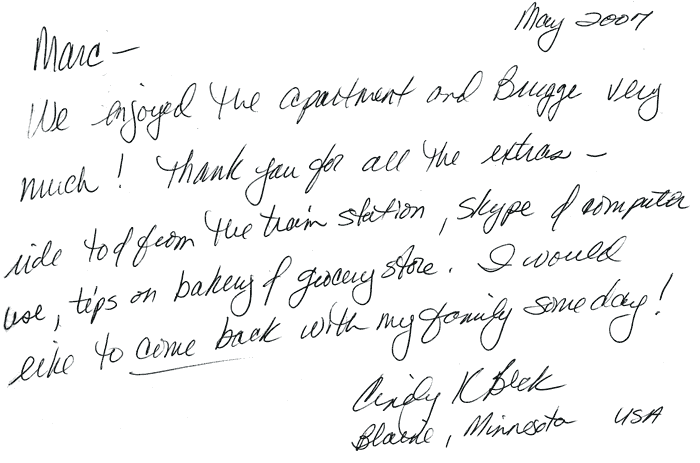 May 2007
Marc —
We enjoyed the apartment and Brugge very
much! Thank you for all the extras —
ride to & from the train station, skype & computer
use, tips on bakery & grocery store. I would
like to come back with my family someday!
Cindy K
Blaine, Minnesota USA